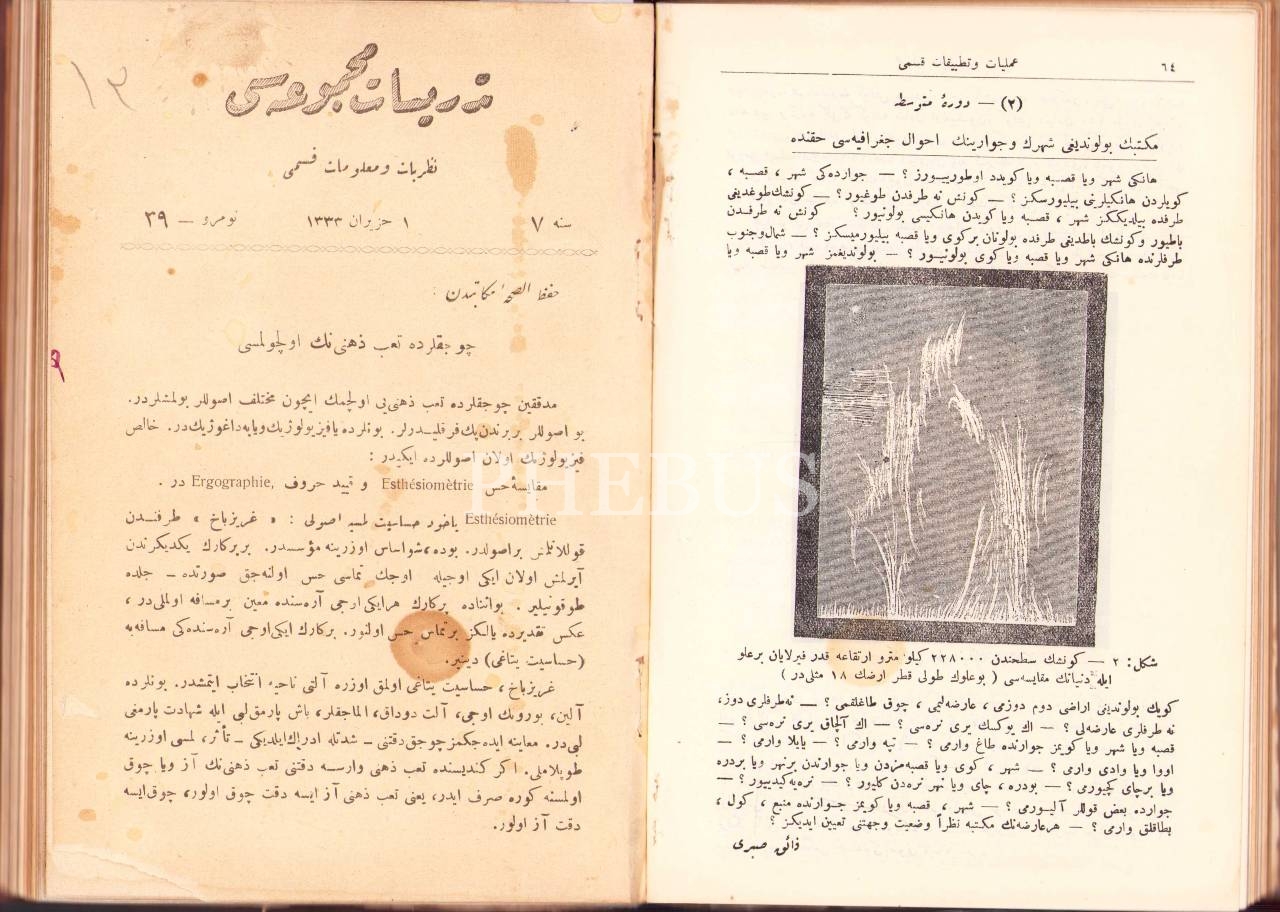 ١٣
تدريسات مجموعه‌سى
نظريات و معلومات قسمى
سنه ٧ ١ حزيران ١٣٣٣ نومرو — ٣٩
حفظ الصحهٔ مكاتبدن :
چوجقلرده تعب ذهنى‌نك اولچولمسى
مدققين چوجقلرده تعب ذهنى‌يى اولچمك ايچون مختلف اصوللر بولمشلردر.
بو اصوللر بربرندن پك فرقليدرلر. بونلرده يا فيزيولوژيك ويا پداغوژيك‌در. خالص
فيزيولوژيك اولان اصوللرده ايكيدر :
مقايسهٔ حس Esthésiométrie و تهييد حروف Ergographie, در .
Esthésiométrie ياخود حساسيت لمسيه اصولى : « غريزباخ » طرفندن
قوللانلمش بر اصولدر. بوده، شو اساس اوزرينه مؤسسدر. بر پركارك يكديكرندن
آيرلمش اولان ايكى اوجيله اوجك تماسى حس اولنه‌جق صورتده — جلده
طوقونيلير . بو اثناده پركارك هر ايكى اوجى آره‌سنده معين بر مسافه اولملى‌در ،
عكس تقديرده يالكز بر تماس حس اولنور. پركارك ايكى اوجى آره‌سنده‌كى مسافه‌يه
(حساسيت يتاغى) دينير.
غريزباخ ، حساسيت يتاغى اولمق اوزره آلتى ناحيه انتخاب ايتمشدر. بونلرده
آلين، بورونك اوجى، آلت دوداق، الماجقلر، باش پارمق لبى ايله شهادت پارمغى
لبى‌در. معاينه ايده‌جكمز چوجق دقتنى — شدتله ادراك ايلديكى — تأثر، لمسى اوزرينه
طوپلاملى. اكر كنديسنده تعب ذهنى وارسه دقتنى تعب ذهنى‌نك آز ويا چوق
اولمسنه كوره صرف ايدر، يعنى تعب ذهنى آز ايسه دقت چوق اولور، چوق ايسه
دقت آز اولور.
عمليات و تطبيقات قسمى ٦٤
(٢) — دورهٔ متوسطه
مكتبك بولونديغى شهرك و جوارينك احوال جغرافيه‌سى حقنده
هانكى شهر ويا قصبه ويا كويده اوطوريیورز ؟ — جوارده‌كى شهر ، قصبه ،
كويلردن هانكيلرينى بيليورسكز ؟ — كونش نه طرفدن طوغيور ؟ — كونشك طوغديغى
طرفده بيلديككز شهر ، قصبه ويا كويدن هانكيسى بولونيور ؟ كونش نه طرفدن
باطيور و كونشك باطديغى طرفده بولونان بر كوى ويا قصبه بيليورميسكز ؟ — شمال و جنوب
طرفلرنده هانكى شهر ويا قصبه ويا كوى بولونيور ؟ — بولونديغمز شهر ويا قصبه ويا
شكل: ٢ — كونشك سطحندن ٢٢٨٠٠٠ كيلو مترو ارتقاعه قدر فيرلايان بر علو
ايله دنيانك مقايسه‌سى ( بو علوك طولى قطر ارضك ١٨ مثلى‌در )
كويك بولونديغى اراضى دوم دوزمى ، عارضه‌ليمى ، چوق طاغلقمى ؟ — نه طرفلرى دوز،
نه طرفلرى عارضه‌لى ؟ — اك يوكسك يرى نره‌سى ؟ — اك آلچاق يرى نره‌سى ؟ —
قصبه ويا شهر ويا كويمز جوارنده طاغ وارمى ؟ — تپه وارمى ؟ — يايلا وارمى ؟ —
اووا ويا وادى وارمى ؟ — شهر ، كوى ويا قصبه‌مزدن ويا جوارندن بر نهر ويا بر دره
ويا بر چاى كچيورمى ؟ — بو دره ، چاى ويا نهر نره‌دن كليور ؟ — نره‌يه كيدييور ؟ —
جوارده بعض قوللر آليورمى ؟ — شهر ، قصبه ويا كويمز جوارنده منبع ، كول ،
بطاقلق وارمى ؟ — هر عارضه‌نك مكتبه نظراً وضعيت و جهتنى تعيين ايديكز ؟
فائق صبرى
PHEBUS